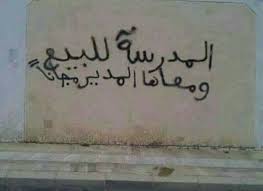 المدرسة للبيع
ومعاها المدير مجاناً